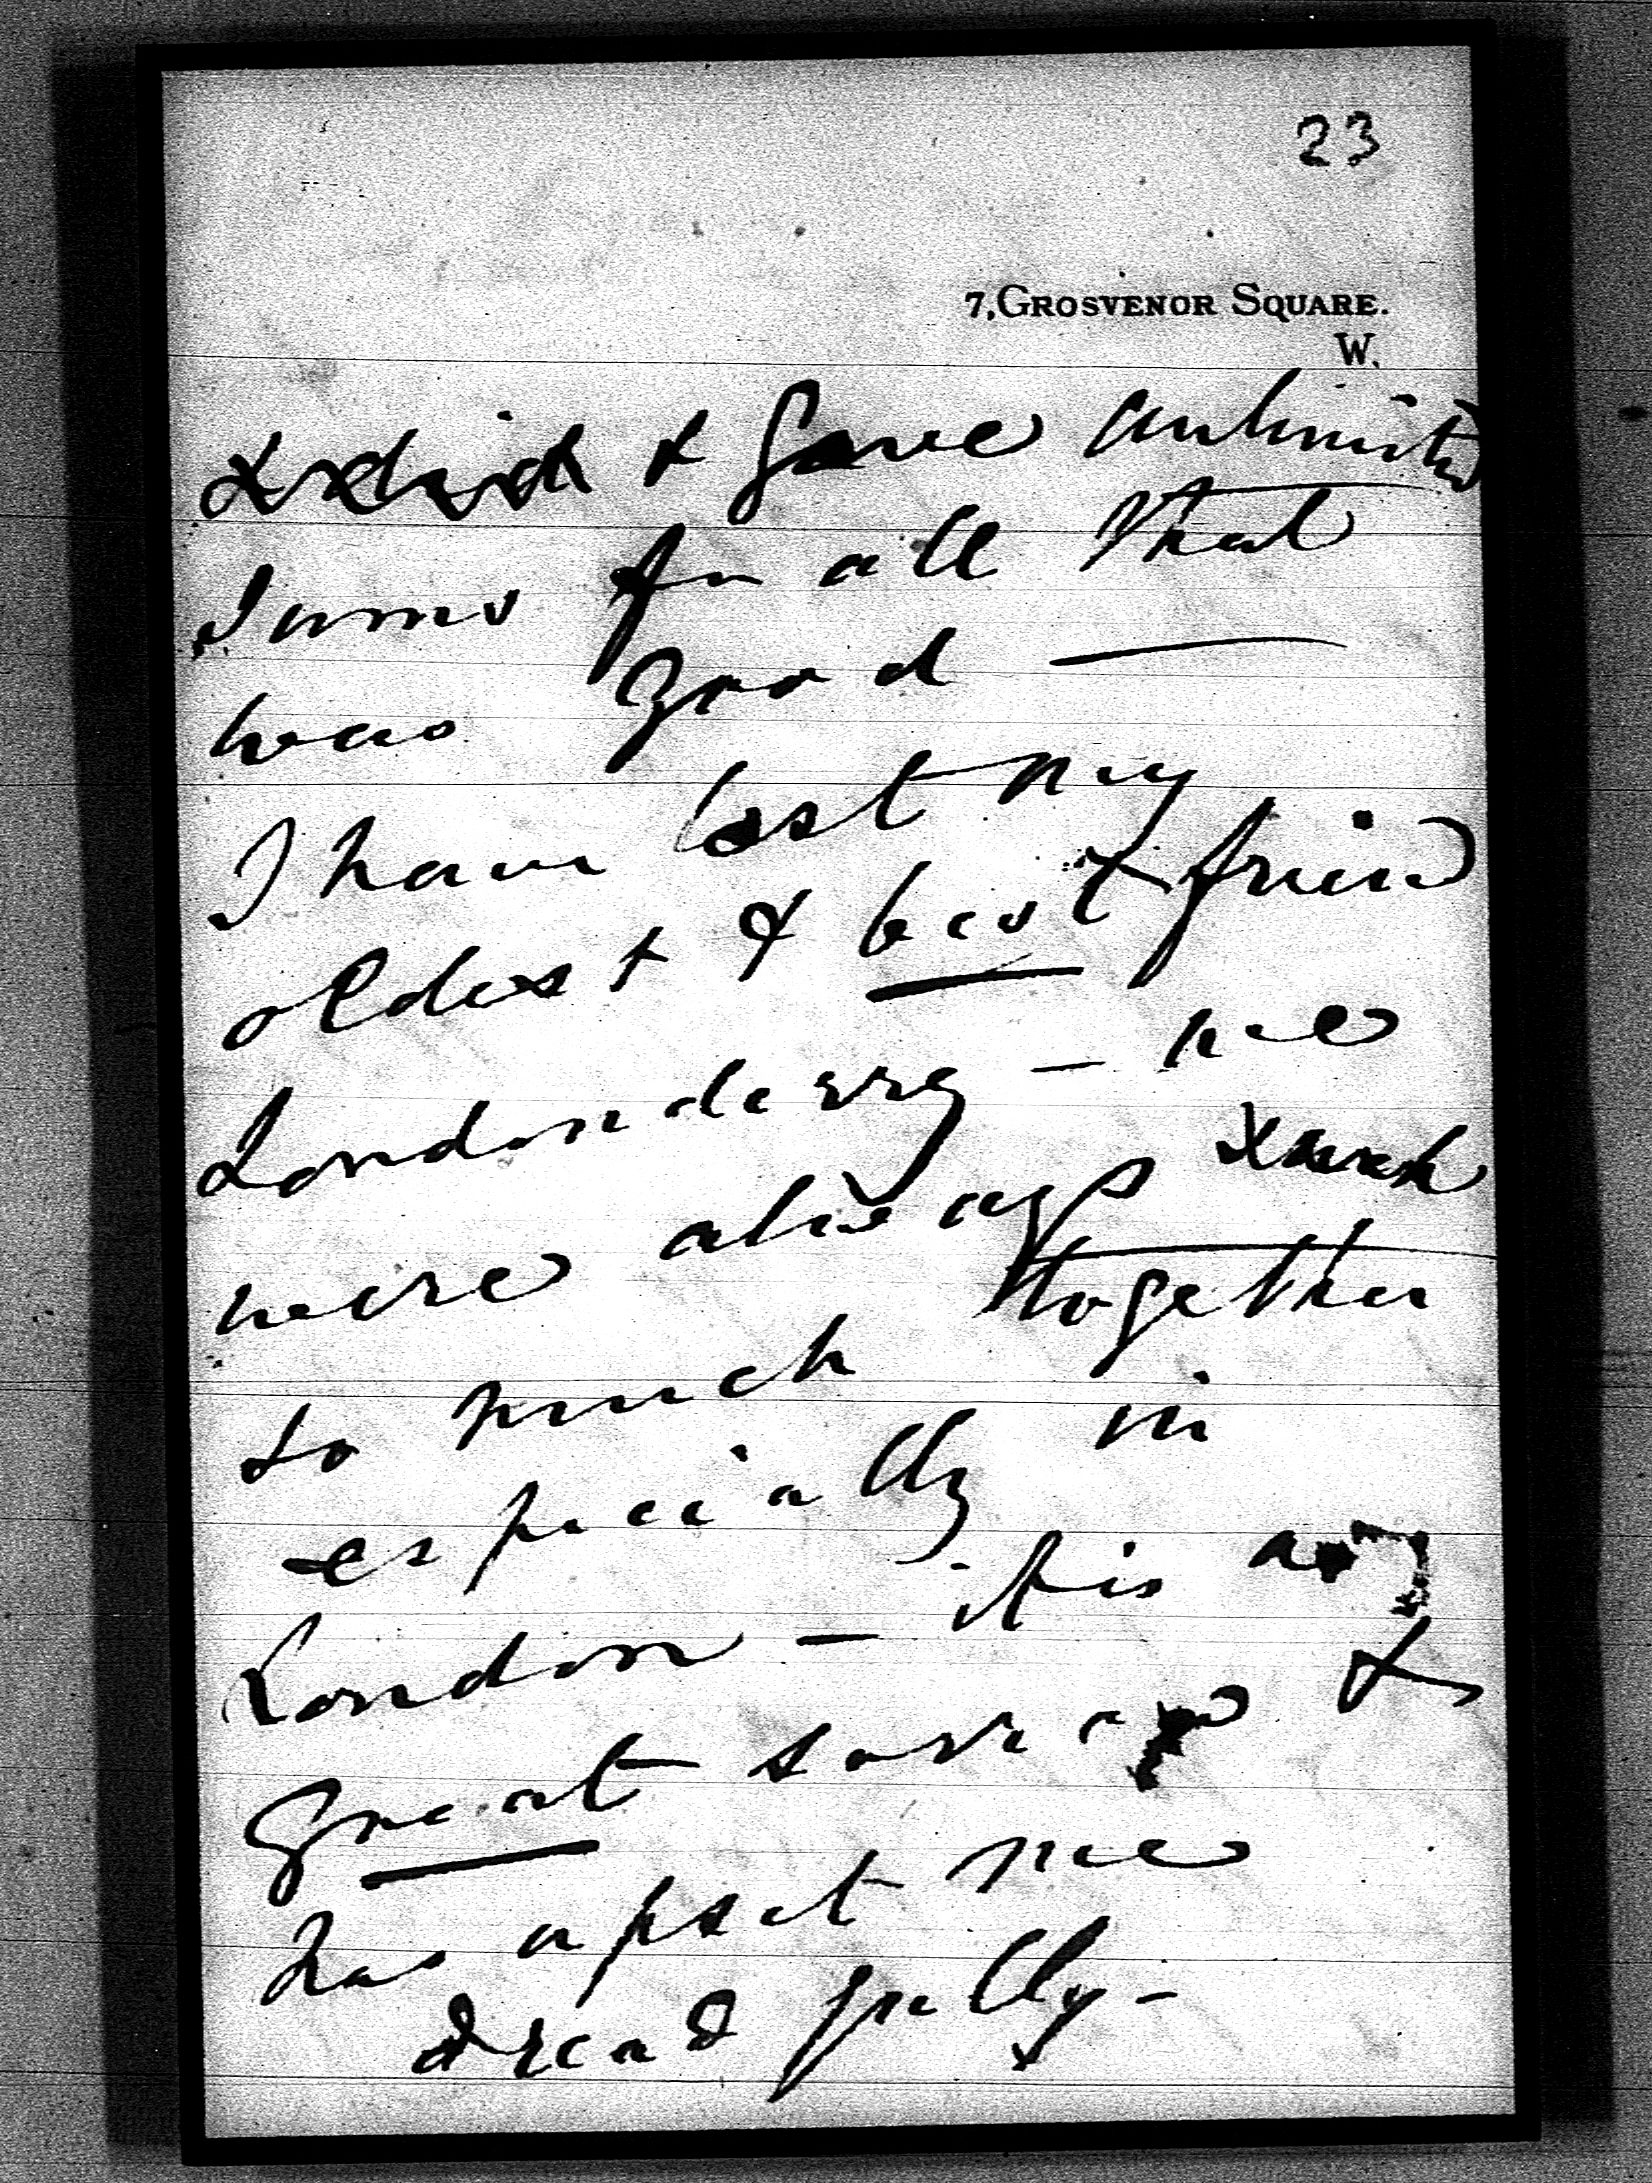 23
7, GROSVENOR SQUARE.
W.
& gave unlimited
sums for all that
was good —
I have lost my
oldest & best friend
Londonderry – we
were always
so much together
especially in
London – it is a
great sorrow &
has upset me
dreadfully –